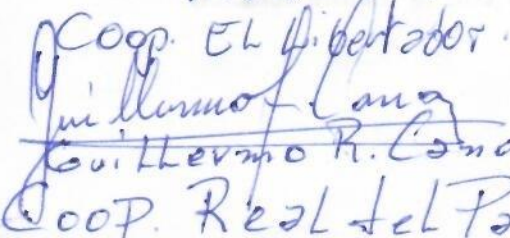 Coop. EL Libertador.
Guillermo Cano
Guillermo R. Cano
Coop. Real del Pa